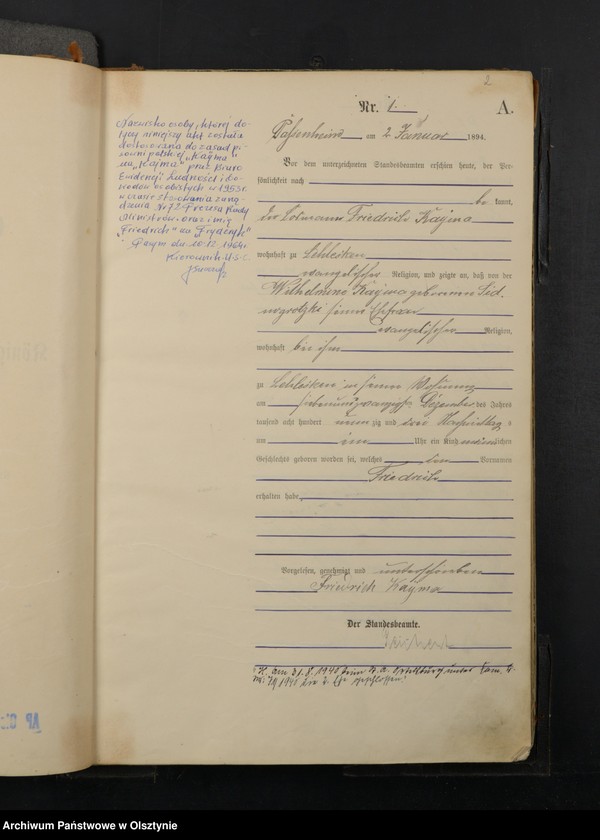 2
Nr. 1.
A.
Passenheim am 2 Januar 1894.
Vor dem unterzeichneten Standesbeamten erschien heute, der Per-
sönlichkeit nach
be kannt,
der Losmann Friedrich Kayma
wohnhaft zu Lehlesken
evangelischer Religion, und zeigte an, daß von der
Wilhelmine Kayma geborenen
seiner Ehefrau
evangelischer Religion,
wohnhaft bei ihm
zu Lehlesken in seiner Wohnung
am siebenundzwanzigsten Dezember des Jahres
tausend acht hundert neunzig und drei Nachmittags
um ein Uhr ein Kind männlichen
Geschlechts geboren worden sei, welches den Vornamen
Friedrich
erhalten habe.
Vorgelesen, genehmigt und unterschrieben
Friedrich Kayma
Der Standesbeamte.
Nazwisko osoby, której do-
tyczy niniejszy akt została
dostosowana do zasad pi-
sowni polskiej "Kayma"
na "Kajma" przez Biuro
Ewidencji Ludności i Do-
wodów osobistych w 1953 r.
w czasie stosowania zarzą-
dzenia Nr 72 Prezesa Rady
Ministrów oraz imię
"Friedrich" na "Fryderyk"
dn. 10.12.1964 r.
Kierownik U.S.C.
am 31.8.1940 beim St. A. Ortelsburg unter
1940 die 2. Ehe geschlossen.
Archiwum Państwowe w Olsztynie